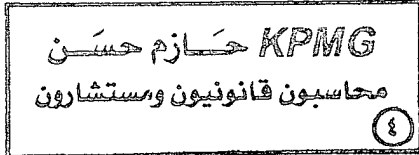 KPMG حــازم حسَـن
محاسبون قانونيون ومستشارون
٤